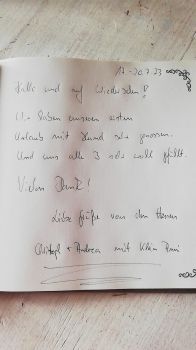 17.-20.7.23
Hallo und auf Wiedersehen!
Wir haben unseren ersten
Urlaub mit Hund sehr genossen.
Und uns alle 3 sehr wohl gefühlt.
Vielen Dank!
Liebe Grüße von den
Christoph + Andrea mit Klein